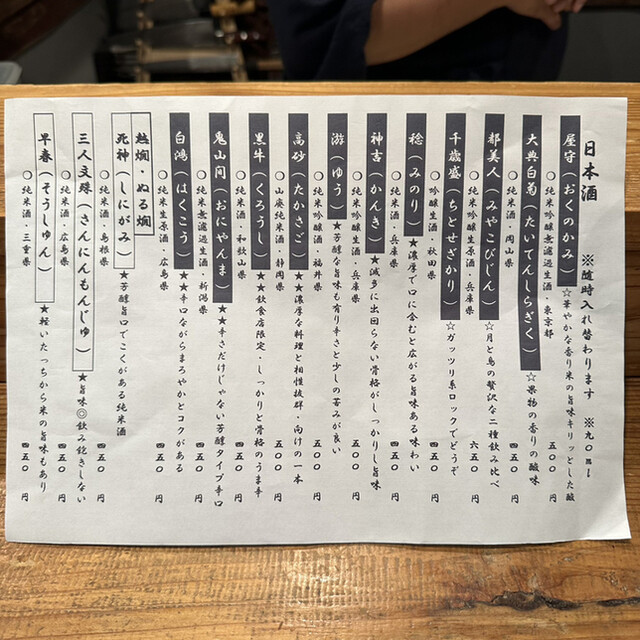 日本酒 ※随時入れ替わります ※九〇ml
屋守（おくのかみ） ☆華やかな香り米の旨味キリッとした酸
〇純米吟醸無濾過生酒・東京都 五五〇円
大典白菊（たいてんしらぎく） ☆果物の香りの酸味
〇純米酒・岡山県 四五〇円
都美人（みやこびじん） ☆月と島の贅沢な二種飲み比べ
〇純米吟醸生原酒・兵庫県 六五〇円
千歳盛（ちとせざかり） ☆ガッツリ系ロックでどうぞ
〇吟醸生酒・秋田県 四五〇円
稔（みのり） ★濃厚で口に含むと広がる旨味ある味わい
〇純米酒・兵庫県 四五〇円
神吉（かんき） ★滅多に出回らない骨格がしっかりし旨味
〇純米吟醸生酒・兵庫県 五五〇円
游（ゆう） ★芳醇な旨味も有り辛さと少しの苦みが良い
〇純米吟醸酒・福井県 五五〇円
高砂（たかさご） ★濃厚な料理と相性抜群・向けの一本
〇山廃純米酒・静岡県 五五〇円
黒牛（くろうし） ★飲食店限定・しっかりと骨格のうま辛
〇純米酒・和歌山県 四五〇円
鬼山間（おにやんま） ★辛さだけじゃない芳醇タイプ辛口
〇純米無濾過生酒・新潟県 四五〇円
白鴻（はくこう） ★辛口ながらまろやかとコクがある
〇純米生原酒・広島県 四五〇円
熱燗・ぬる燗
死神（しにがみ） ★芳醇旨口でこくがある純米酒
〇純米酒・島根県 四五〇円
三人文殊（さんにんもんじゅ） ★旨味◎飲み飽きしない
〇純米酒・広島県 四五〇円
早春（そうしゅん） ★軽いたっちから米の旨味もあり
〇純米酒・三重県 四五〇円